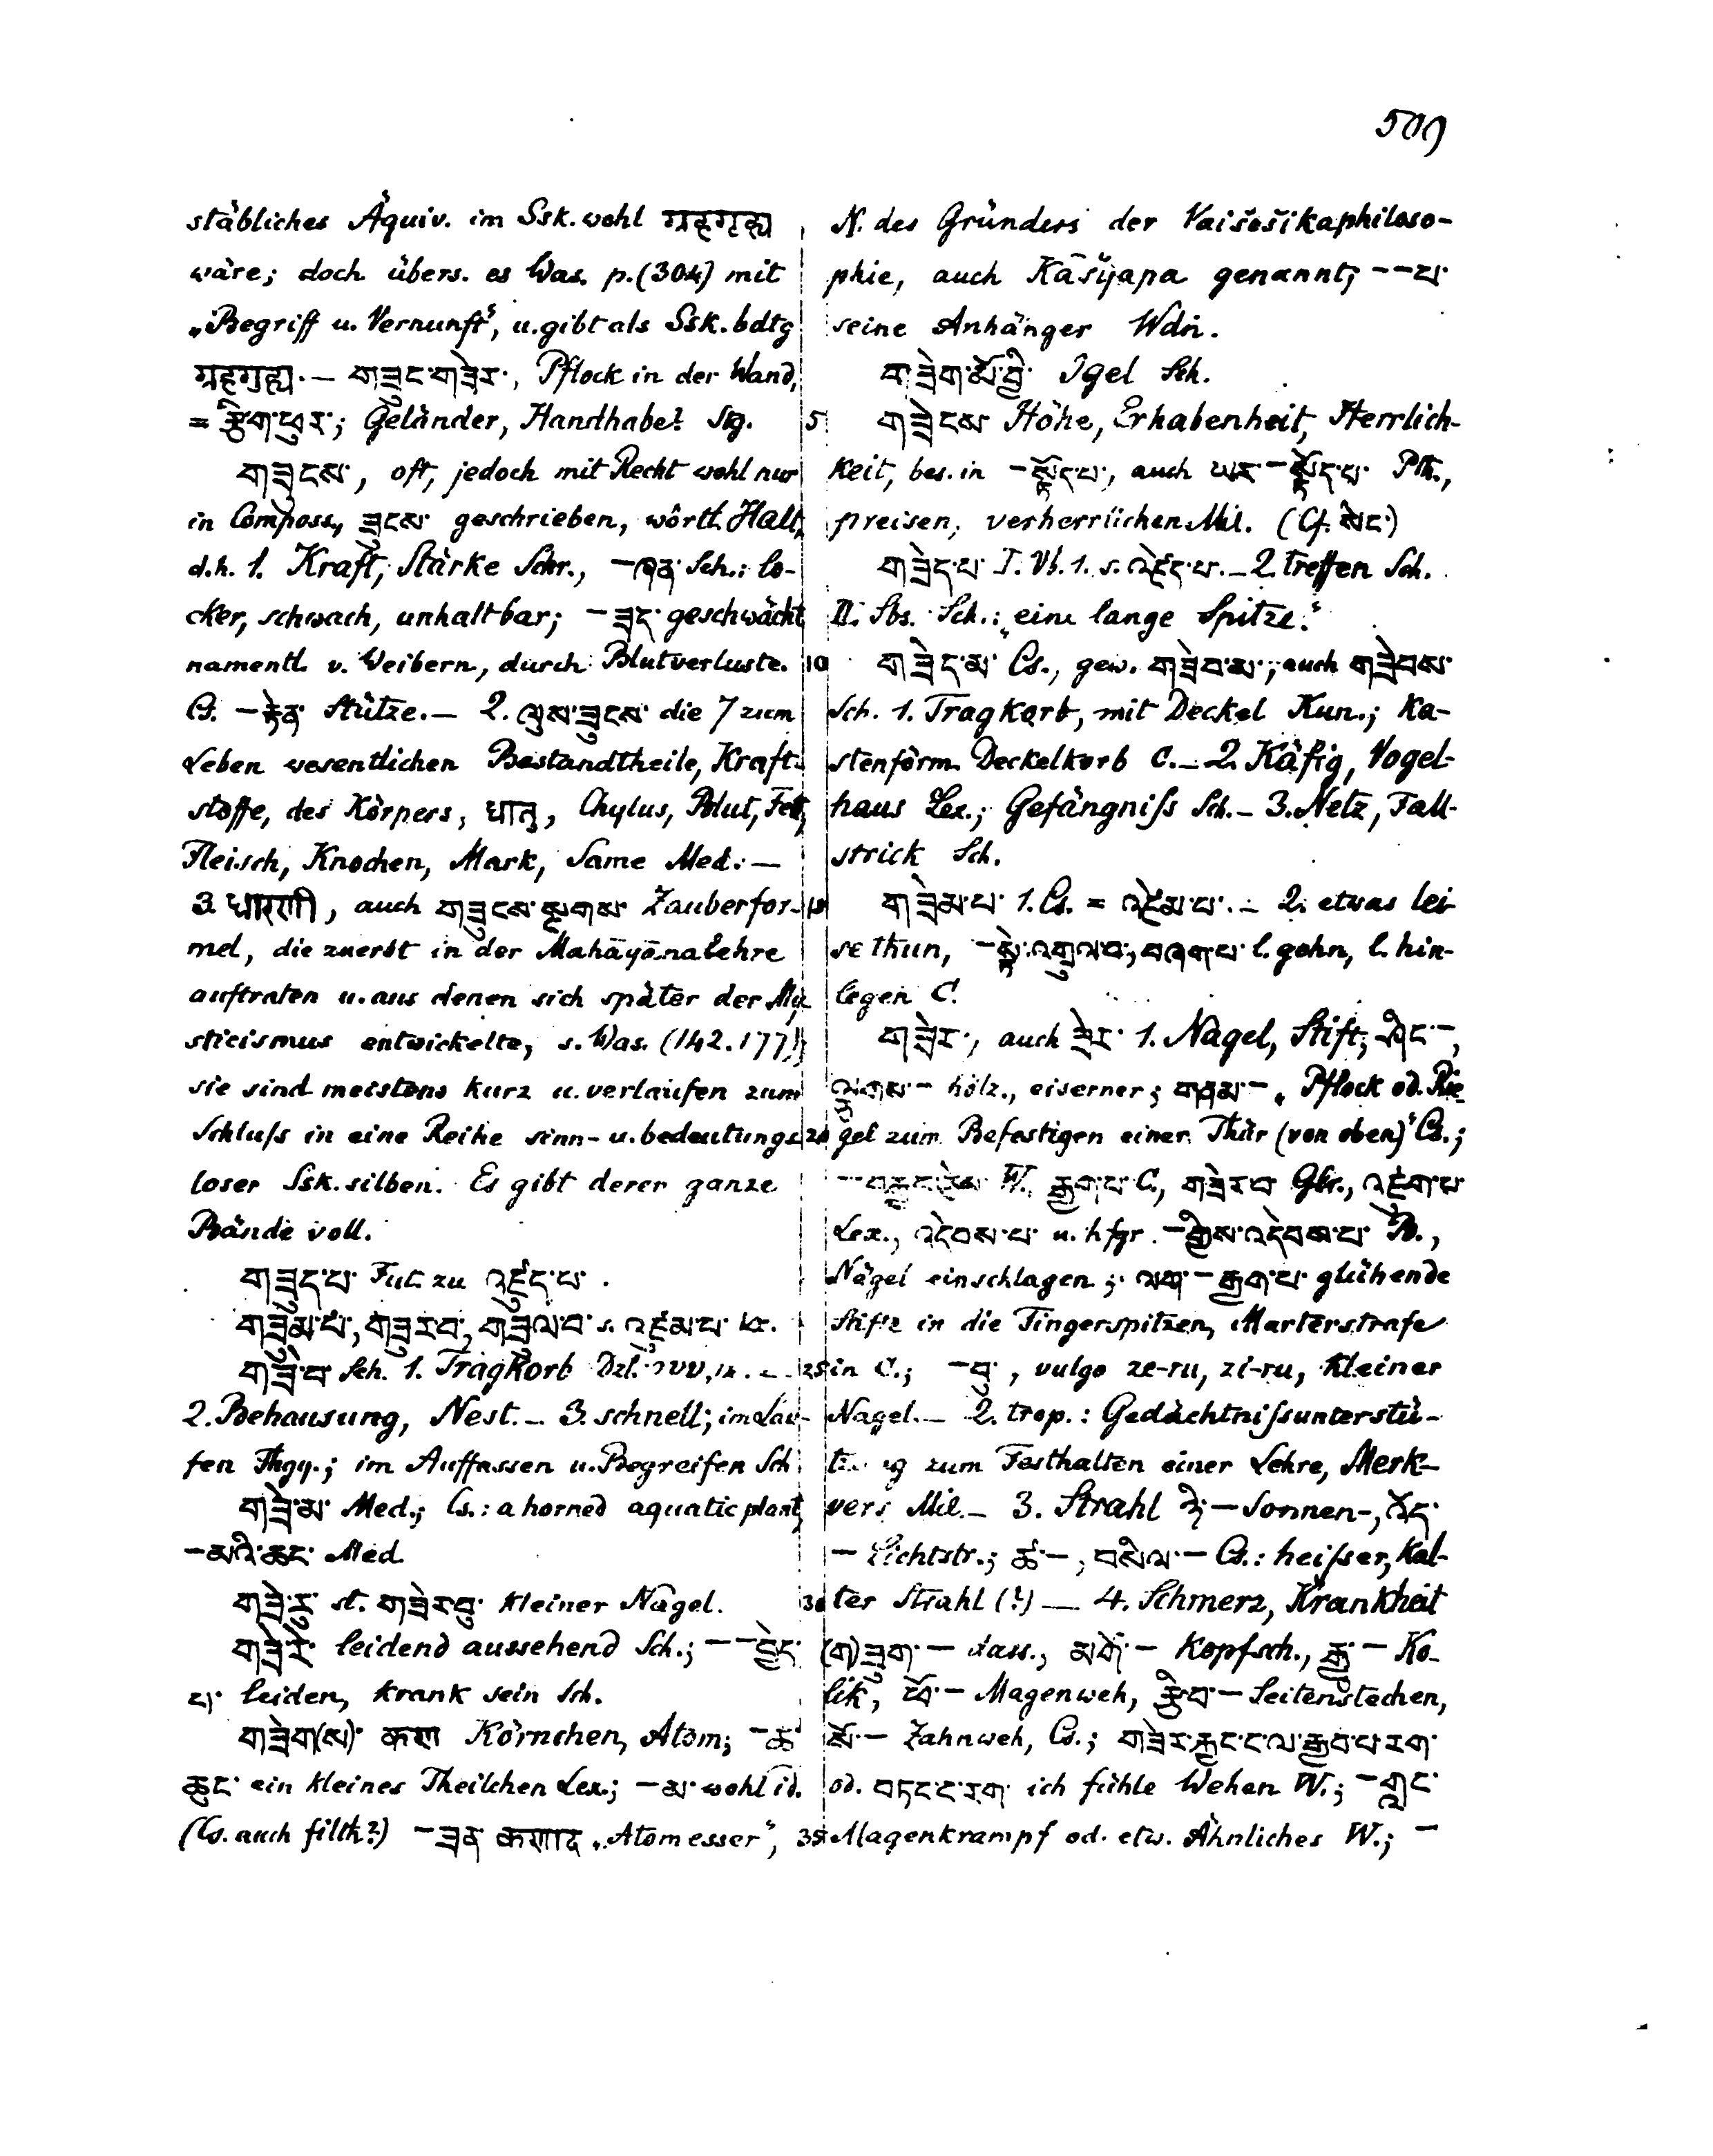 509
stäbliches Äquiv. im Ssk. wohl
wäre; doch übers. es Was. p. (304) mit
„Begriff u. Vernunft", u. gibt als Ssk. bdtg
— གཟུང་གཟེར་, Pflock in der Wand,
= རྩིག་ཕུར་; Geländer, Handhabe?
གཟུངས་, oft, jedoch mit Recht wohl nur
in Composs, ཟུངས་ geschrieben, wörtl. Halt,
d.h. 1. Kraft, Stärke Schr., – Sch.: lo-
cker, schwach, unhaltbar; –ཟད་ geschwächt
namentl. v. Weibern, durch Blutverluste.
Cs. –རྟེན་ Stütze.— 2. ལུས་ཟུངས་ die 7 zum
Leben wesentlichen Bestandtheile, Kraft-
stoffe, des Körpers, धातु, Chylus, Blut, Fett,
Fleisch, Knochen, Mark, Same Med.: —
3. धारणी, auch གཟུངས་སྔགས་ Zauberfor-
mel, die zuerst in der Mahāyānalehre
auftraten u. aus denen sich später der My-
sticismus entwickelte, s. Was. (142. 177);
sie sind meistens kurz u. verlaufen zum
Schluſs in eine Reihe sinn- u. bedeutungs-
loser Ssk. silben. Es gibt derer ganze
Bände voll.
གཟུད་པ་ Fut zu འཛུད་པ་.
གཟུམ་པ་, གཟུར་བ་, གཟུལ་བ་ s. འཛུམ་པ་ etc.
གཟེ་བ་ Sch. 1. Tragkorb Dzl.
2. Behausung, Nest. — 3. schnell; im Lau-
fen Thgy.; im Auffassen u. Begreifen Sch.
གཟེ་མ་ Med.; Cs.: a horned aquatic plant,
–མའི་ཆང་ Med.
གཟེ་རུ་ st. གཟེར་བུ་ kleiner Nagel.
གཟེ་རེ་ leidend aussehend Sch.; ––བྱེད་
པ་ leiden, krank sein Sch.
གཟེག(ས)་ कण Körnchen, Atom; –
ཆུང་ ein kleines Theilchen Lex.; –མ་ wohl id.
(Cs. auch filth?) –ཟན་ कणाद „Atomesser",
N. des Gründers der Vaišešikaphiloso-
phie, auch Kāšyapa genannt; ––པ་
seine Anhänger Wdṅ.
Igel Sch.
5 གཟེངས་ Höhe, Erhabenheit, Herrlich-
keit, bes. in –སྟོད་པ་, auch ཡར་–སྟོད་པ་ Pth.,
preisen, verherrlichen Mil. (Cf. སེང་)
གཟེད་པ་ I. Vb. 1. s. འཛེད་པ་.—2. treffen Sch.
II. Sbs. Sch.: „eine lange Spitze."
10 གཟེད་མ་ Cs., gew. གཟེབ་མ་; auch གཟེབས་
Sch. 1. Tragkorb, mit Deckel Kun.; ka-
stenförm. Deckelkorb C.— 2. Käfig, Vogel-
haus Lex.; Gefängniſs Sch.— 3. Netz, Fall-
strick Sch.
15 གཟེམ་པ་ 1. Cs. = འཛེམ་པ་.— 2. etwas lei-
se thun, –སྟེ་འགྲུལ་བ་, བཞག་པ་ l. gehn, l. hin-
legen C.
གཟེར་, auch ཟེར་ 1. Nagel, Stift; ཤིང་–,
ལྕགས་– hölz., eiserner; གནམ་– „Pflock od. Rie-
20 gel zum Befestigen einer Thür (von oben)" Cs.;
W. རྒྱག་པ་ C., གཟེར་བ་ Glr., འཛུག་པ་
Lex., འདེབས་པ་ u. hfgr. –གྱིས་འདེབས་པ་ B.,
Nägel einschlagen; ལག་–རྒྱག་པ་ glühende
Stifte in die Fingerspitzen, Marterstrafe
25 in C.; –བུ་, vulgo ze-ru, zi-ru, kleiner
Nagel.— 2. trop.: Gedächtniſsunterstü-
tzung zum Festhalten einer Lehre, Merk-
vers Mil.— 3. Strahl ཉི་– Sonnen-, འོད་
– Lichtstr.; ཚ་–, བསིལ་– Cs.: heiſser, kal-
30 ter Strahl (?) — 4. Schmerz, Krankheit
(ག)ཟུག་– dass., མགོ་– Kopfsch., རྒྱུ་– Ko-
lik, ཕོ་– Magenweh, རྩིབ་– Seitenstechen,
སོ་– Zahnweh, Cs.; གཟེར་རྐང་ང་ལ་རྒྱབ་པ་རག་
od. བཏང་ང་རག་ ich fühle Wehen W.; –གླང་
35 Magenkrampf od. etw. Ähnliches W.; –